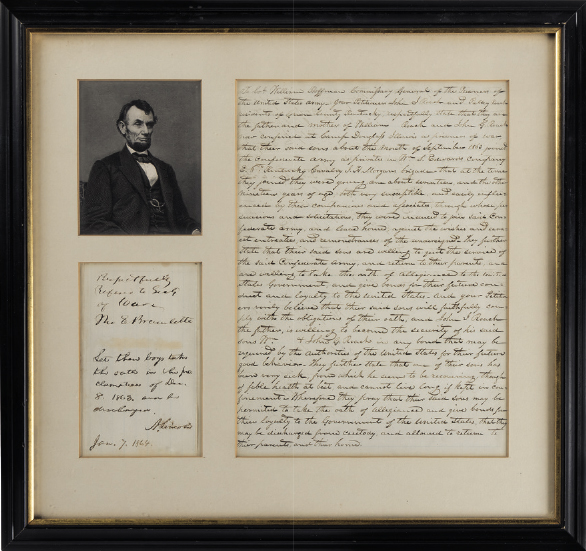 Respectfully
Refered to Sec of
of War
Tho E Bramlette
Let these boys take
the oath in the pro
clamation of Dec.
8. 1863. and be
discharged.
A. Lincoln
Jan. 7. 1864.
To Col William Hoffman Commissary General of the Prisoners of
the United States Army. Your petitioners John
residents of County Kentucky, respectfully that they are
the father and mother of William and John
now confined at Camp Douglas Illinois as prisoners of war
that their said sons about the month of September 1862 joined
the Confederate Army as privates in Company
Kentucky Cavalry J. H. Morgan brigade that at the time
they joined they were young, one about seventeen and the other
nineteen years of age both very susceptible and easily influ
enced by their companions and associates through whose per
suasions and solicitations, they were induced to join said Con
federate army, and leave home, against the wishes and earn
est entreaties, and remonstrances of the undersigned. They further
state that their said sons are willing to quit the service of
the said Confederate Army, and return to their parents, and
are willing to take the oath of allegiance to the United
States Government and give bonds for their future con
duct and loyalty to the United States. and your Petition
ers verily believe that their said sons will faithfully com
ply with the obligations of their oath, and John
the father, is willing to become the security of his said
sons Wm & John in any bonds that may be
required by the authorities of the United States for their future
good behavior. They further state that one of their sons has
been very sick, from which he
of feeble health at best and cannot live long if kept in con
finement. Wherefore they pray that their said sons may be
permitted to take the oath of allegiance and give bonds for
their loyalty to the Government of the United States, that they
may be discharged from custody and allowed to return to
their parents, and their home.